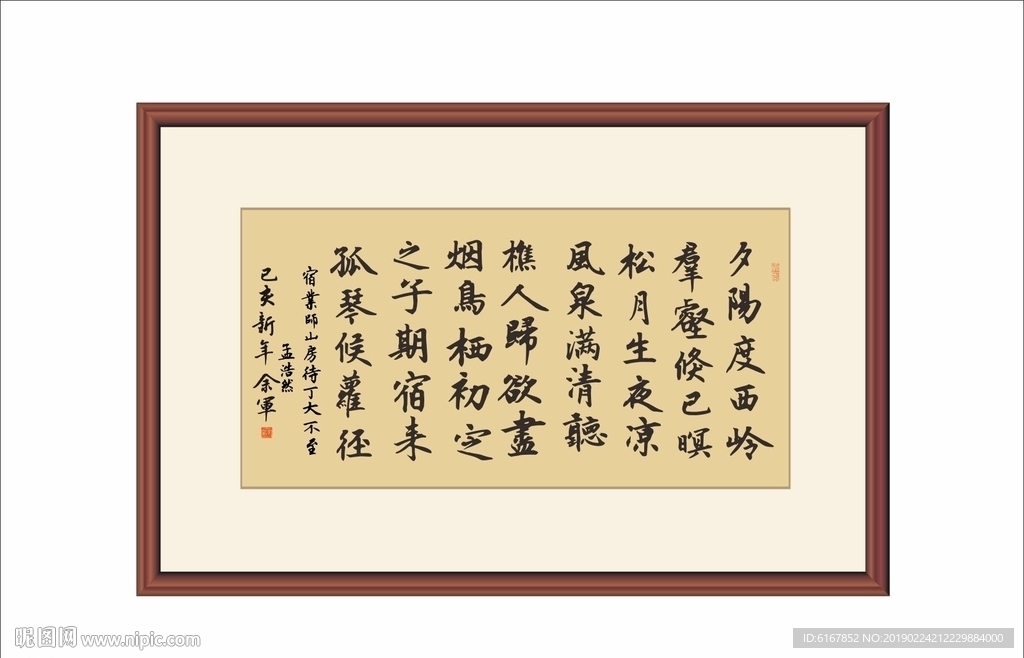 夕陽度西岭
羣壑倏已暝
松月生夜凉
風泉满清聽
樵人歸欲盡
烟鳥栖初定
之子期宿来
孤琴候蘿径
宿業師山房待丁大不至
孟浩然
己亥新年 余軍
昵图网 www.nipic.com
ID:6167852 NO:20190224212229884000